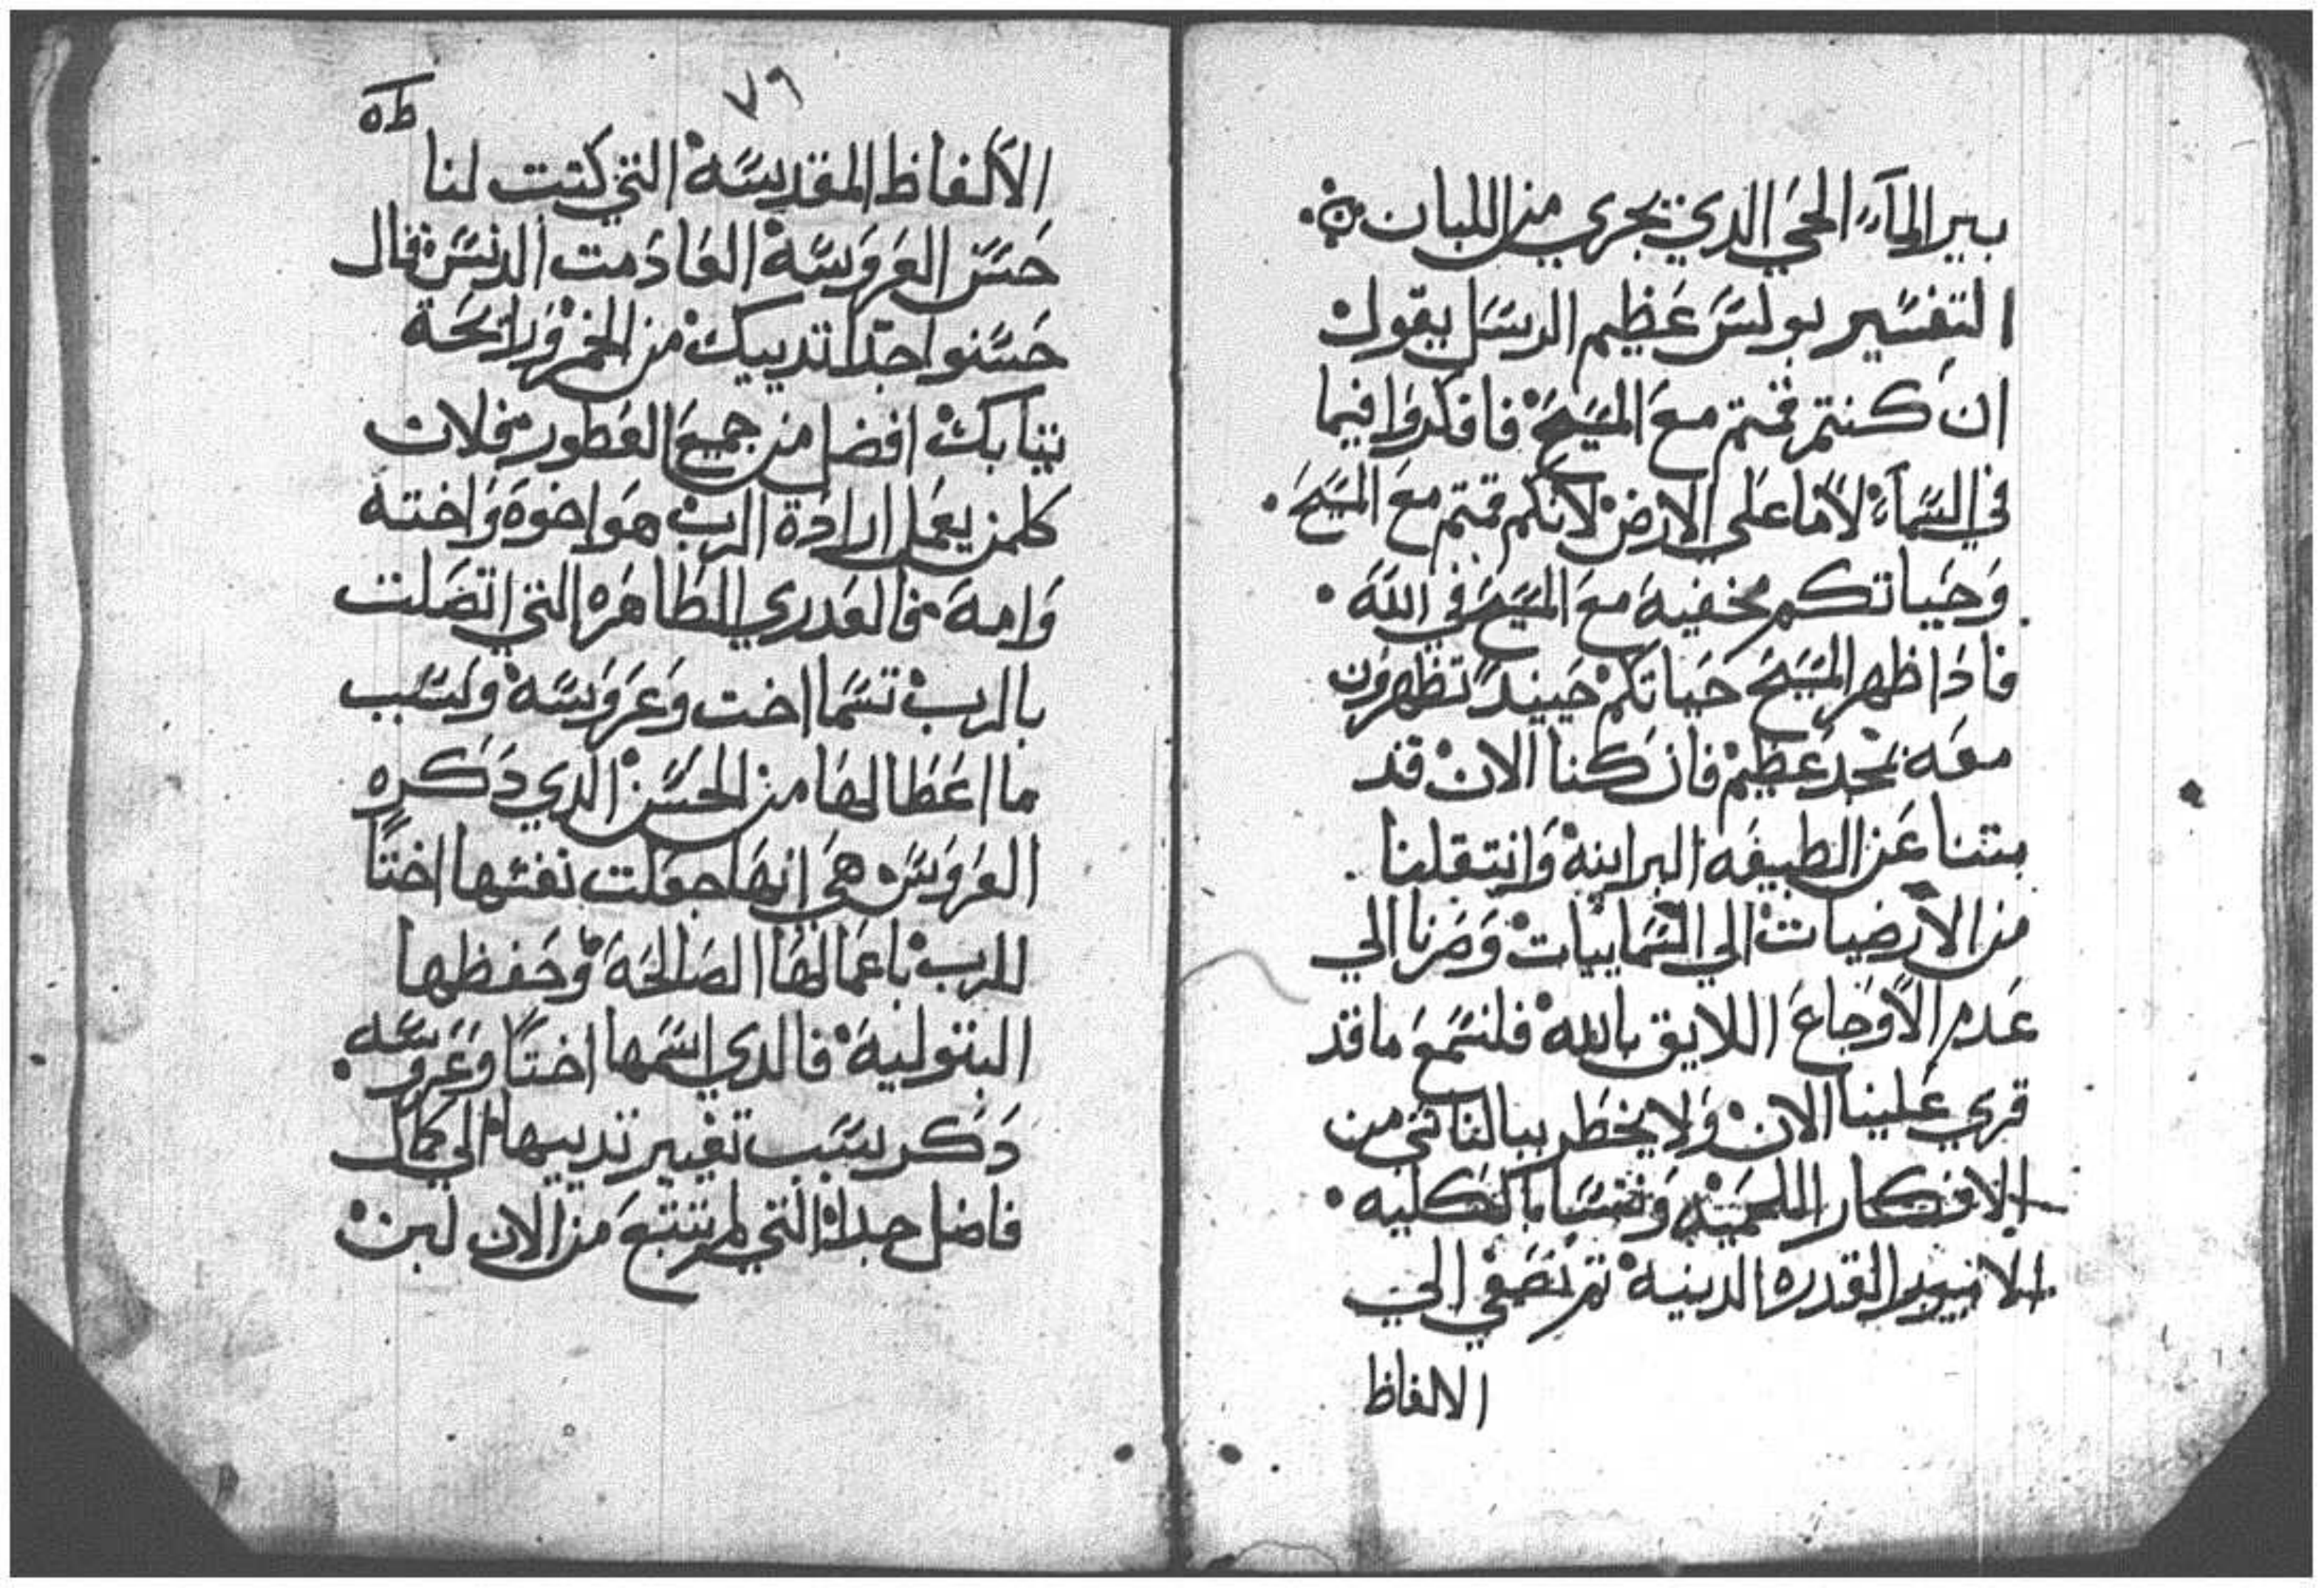 بير المآء الحي الدي يجري من اللبان
التفسير بولس عظيم الرسل يقول
ان كنتم قمتم مع المسيح فافكروا فيما
في السمآء لا ما على الارض لانكم قمتم مع المسيح
وحياتكم مخفيه مع المسيح في الله
فادا ظهر المسيح حياتكم حينيد تظهرون
معه بمجد عظيم فان كنا الان قد
متنا عن الطبيعه البرانية وانتقلنا
من الارضيات الي السماييات وصرنا الي
عدم الاوجاع اللايق بالله فلنسمع ما قد
قري علينا الان ولا يخطر ببالنا شي من
الافكار اللحميه وننسا بالكليه
القدره الدنيه ثم نصغي الي
الالفاظ
٧٩
الالفاظ المقدسة التي كتبت لنا
حسن العروسة العادمت الدنس قال
حسنوا جدا تدييك من الخمر ورايحة
تيابك افضل من جميع العطور فلان
كلمن يعمل ارادة الرب هو اخوه واخته
وامه فالعدري الطاهره التي اتصلت
بالرب تسما اخت وعروسة ولسبب
ما اعطا لها من الحسن الدي دكره
العروس هي انها جعلت نفسها اختا
للرب باعمالها الصالحة وحفظها
البتولية فالدي اسمها اختا وعروسه
دكر سبب تغيير تدييها الي كمال
فاضل جدا التي لم تنبع من الان لبن